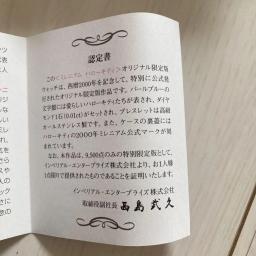 認定書
この<ミレニアム ハローキティ>オリジナル限定版
ウォッチは、西暦2000年を記念して、特別に公式発
行されたオリジナル限定版作品です。パールブルーの
文字盤には愛らしいハローキティたちが表され、ダイヤ
モンド1石(0.01ct)がセットされ、ブレスレットは高級
オールステンレス製です。また、ケースの裏蓋には
ハローキティの2000年ミレニアム公式マークが刻ま
れています。
なお、本作品は、9,500点のみの特別限定版として、
インペリアル・エンタープライズ株式会社より、お1人様
1点限りで提供されたものであることを証明いたします。
インペリアル・エンタープライズ株式会社
取締役副社長 西島 武久